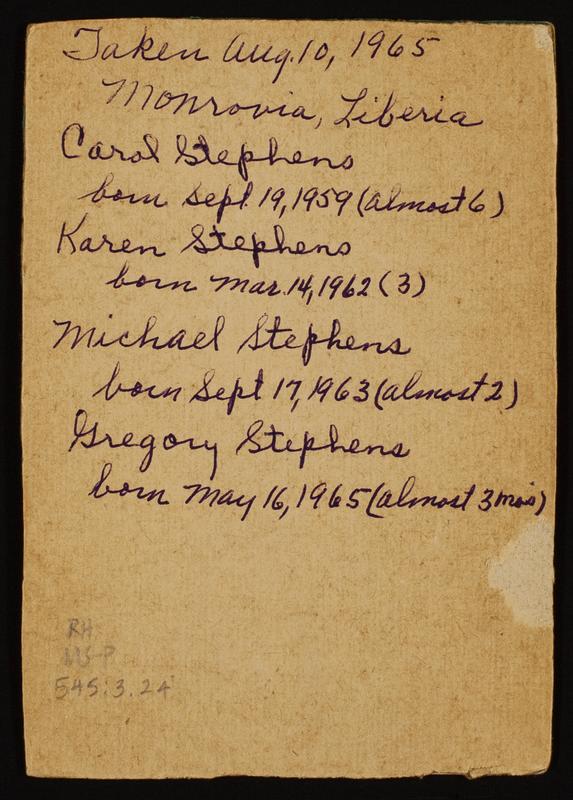 Taken Aug. 10, 1965
Monrovia, Liberia
Carol Stephens
born Sept. 19, 1959 (almost 6)
Karen Stephens
born Mar. 14, 1962 (3)
Michael Stephens
born Sept 17, 1963 (almost 2)
Gregory Stephens
born May 16, 1965 (almost 3 mos)
RH
MS-P
545:3.24